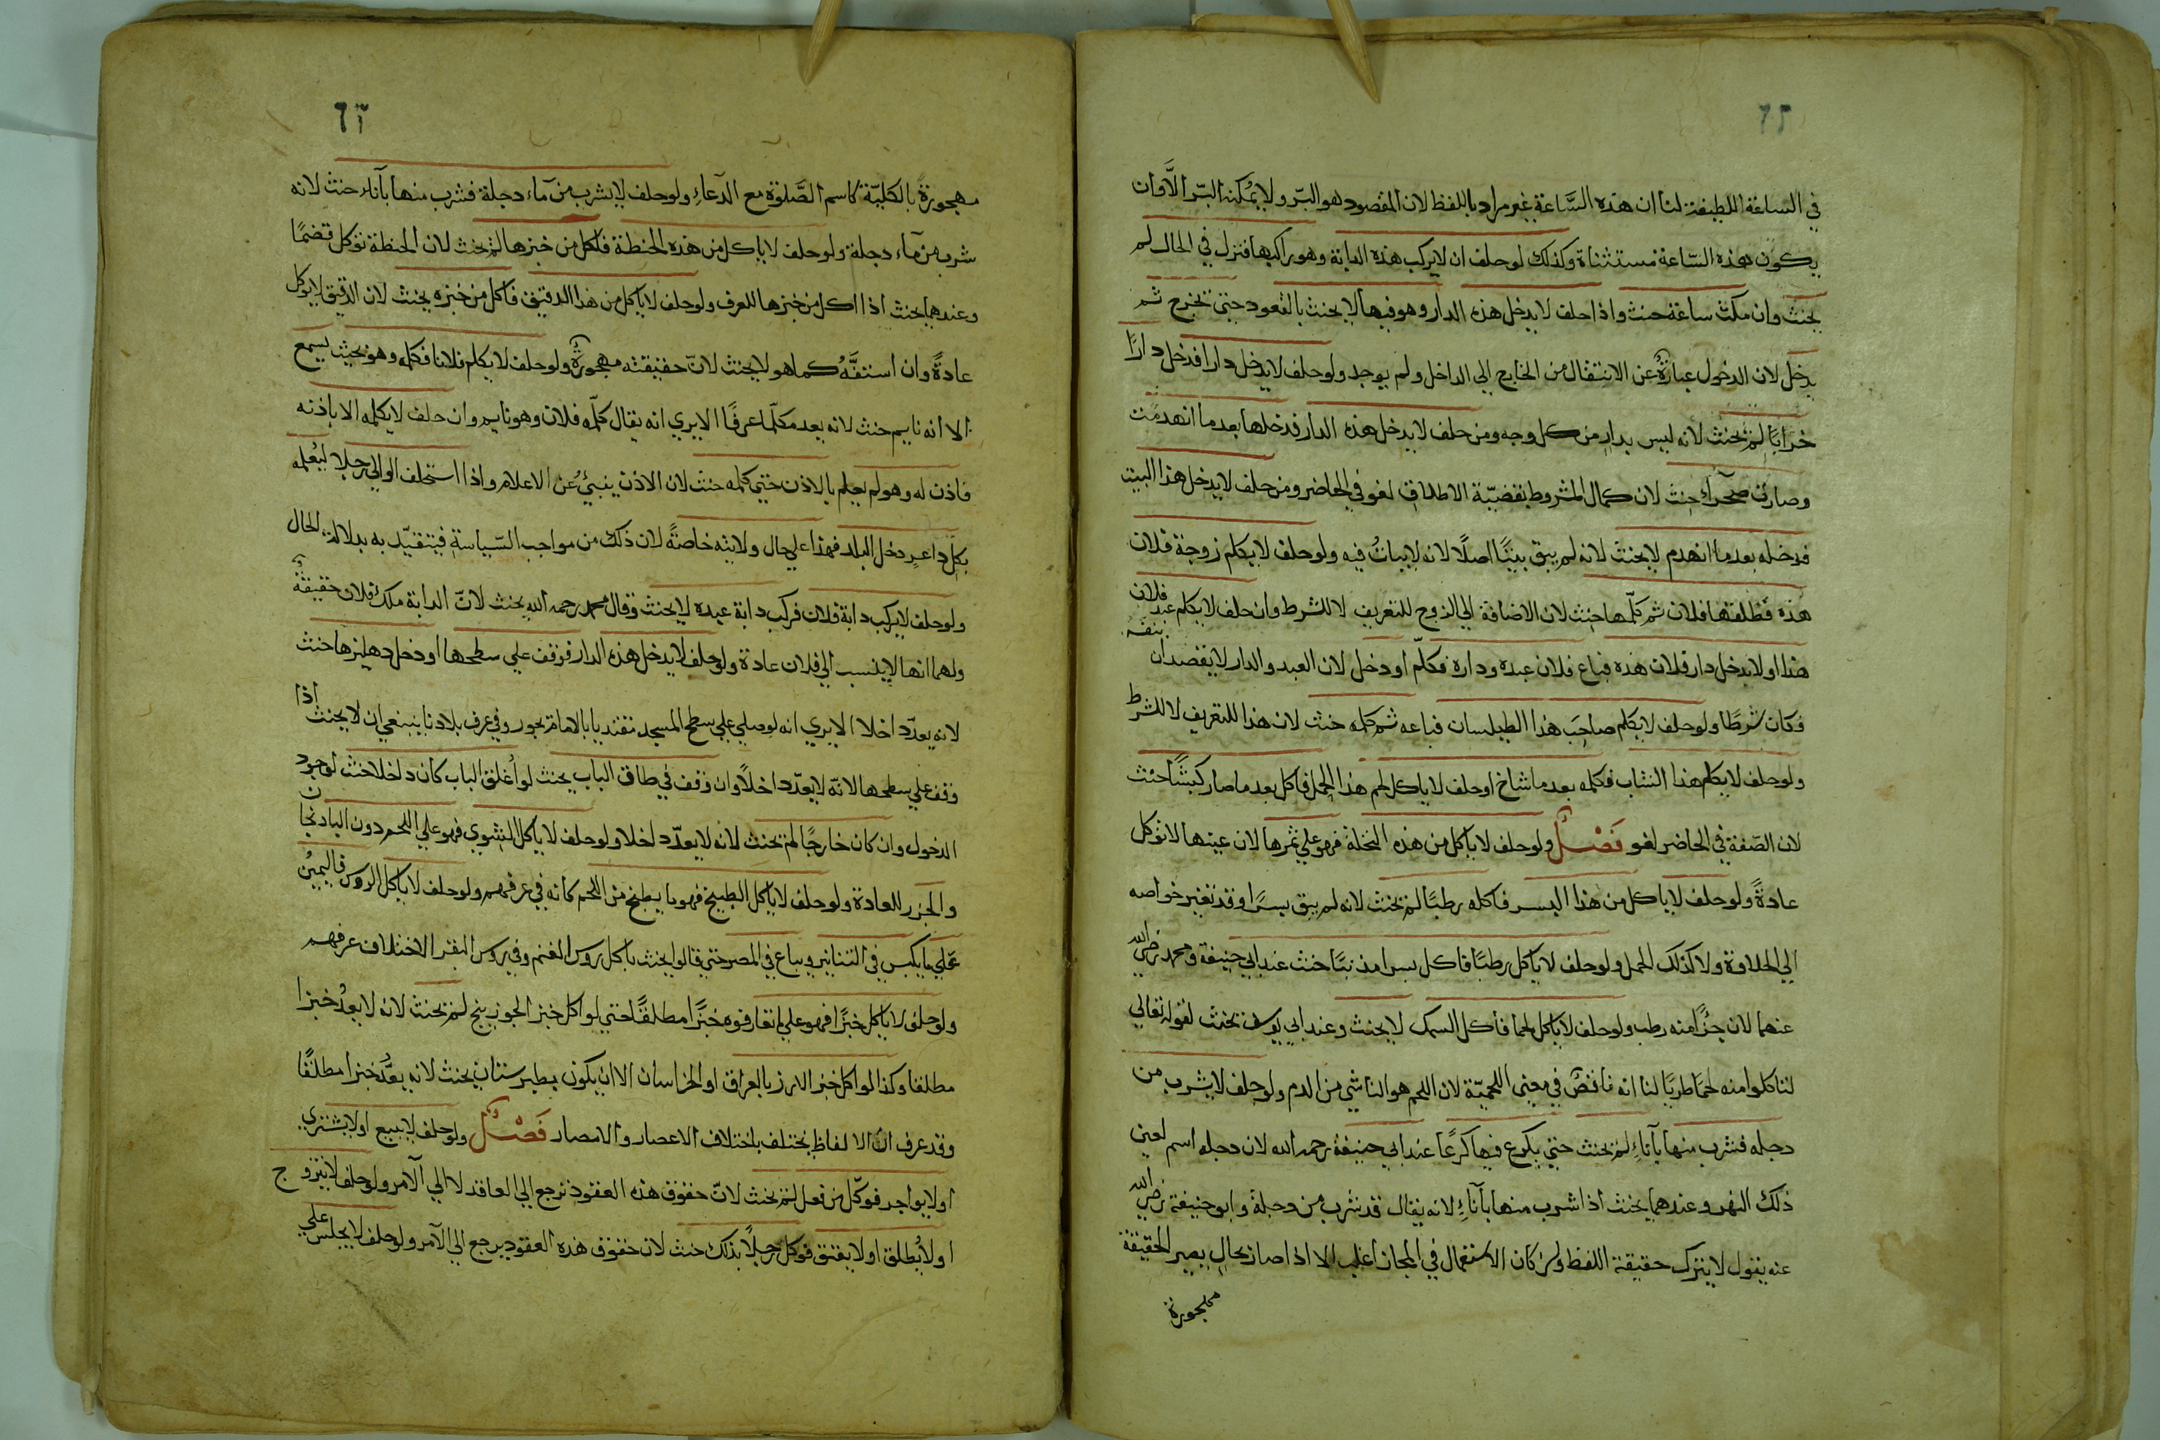 ٦٢
في الساعة اللطيفة لنا ان هذه السَّاعة غير مراد باللفظ لان المقصود هو البرّ ولا يُمكنه البرّ الَّا وان
يكون هذه السّاعة مستثناة وكذلك لو حلف ان لا يركب هذه الدابة وهو راكبها فنزل في الحال لم
يحنث وان مكث ساعة حنث واذا حلف لا يدخل هذه الدار وهو فيها لا يحنث بالقعود حتى يخرج ثم
يدخل لان الدخول عبارةٌ عن الانتقال من الخارج الي الداخل ولم يوجد ولو حلف لا يدخل دارا فدخل دارًا
خرابًا لم يحنث لانه ليس بدارٍ من كل وجه ومن حلف لا يدخل هذه الدار فدخلها بعد ما انهدمت
وصارت صحرآء حنث لان كمال المشروط بقضيّة الاطلاق لغو في الحاضر ومن حلف لا يدخل هذا البيت
فدخله بعد ما انهدم لا يحنث لانه لم يبق بيتًا اصلًا لانه لا يباتُ فيه ولو حلف لا يكلم زوجة فلان
هذه فطلقها فلان ثم كلّمها حنث لان الاضافة الي الزوج للتعريف لا للشرط وان حلف لا يكلم عبد فلان
هذا او لا يدخل دار فلان هذه فباع فلان عبده وداره فكلّم او دخل لان العبد والدار لا يقصدان بنفسه
فكان شرطًا ولو حلف لا يكلم صاحبَ هذا الطيلسان فباعه ثم كلمه حنث لان هذا للتعريف لا للشرط
ولو حلف لا يكلم هذا الشاب فكلمه بعد ما شاخ او حلف لا ياكل لحم هذا الحمل فاكل بعد ما صار كبشًا حنث
لان الصّفة في الحاضر لغو فَصْلٌ ولو حلف لا ياكل من هذه النخلة فهو علي ثمرها لان عينها لا تؤكل
عادةً ولو حلف لا ياكل من هذا البسر فاكله رطبًا لم يحنث لانه لم يبق بسرًا وقد تغير خواصه
الي الحلاوة ولا كذلك الحمل ولو حلف لا ياكل رطبًا فاكل بسرا مذنبًا حنث عند ابي حنيفة ومحمد رضي الله
عنهما لان جزًا منه رطب ولو حلف لا ياكل لحما فأكل السمك لا يحنث وعند ابي يوسف يحنث لقوله تعالي
لتاكلوا منه لحمًا طريًا لنا انه ناقصٌ في معنى اللحميّة لان اللحم هو الناشي من الدم ولو حلف لا يشرب من
دجله فشرب منها بآناءِ لم يحنث حتى يكرع فيها كرعًا عند ابي حنيفة رحمه الله لان دجله اسم لعين
ذلك النهر وعندهما يحنث اذا شرب منها بآناءِ لانه يقال قد شرب من دجلة وابو حنيفة رضي الله
عنه يقول لا يترك حقيقة اللفظ وان كان الاستعمال في المجاز اغلب الا اذا صار بحال يصير الحقيقة
مهجورة
٦٣
مهجورة بالكليّة كاسم الصَّلوٰة مع الدَّعاءِ ولو حلف لا يشرب من مآء دجلة فشرب منها بآناء حنث لانه
شرب من مآء دجلة ولو حلف لا ياكل من هذه الحنطة فاكل من خبزها لم يحنث لان الحنطة تؤكل قضمًا
وعندهما يحنث اذا اكل من خبزها للعرف ولو حلف لا ياكل من هذا الدقيق فاكل من خبزه يحنث لان الدقيق لا يوكل
عادةً وان استفَّهُ كما هو لا يحنث لانّ حقيقته مهجورةٌ ولو حلف لا يكلم فلانا فكلمه وهو بحيث يسمع
الا انه نايم حنث لانه يعد مكلّما عرفًا الا يري انه يقال كلّمه فلان وهو نايم وان حلف لا يكلمه الا باذنه
فاذن له وهو لم يعلم بالاذن حتى كلمه حنث لان الاذن ينبئُ عن الاعلام واذا استحلف الوالي رجلا ليُعلمه
بكلّ داعرٍ دخل البلد فهذا علي حال ولايته خاصةً لان ذلك من مواجب السّياسة فيتقيّد به بدلالة الحال
ولو حلف لا يركب دابة فلان فركب دابة عبده لا يحنث وقال محمد رحمه الله يحنث لانّ الدابة ملك فلان حقيقة
ولهما انها لا ينسب الي فلان عادة ولو حلف لا يدخل هذه الدار فوقف علي سطحها او دخل دهليزها حنث
لانه يعدّ داخلا الا يري انه لو صلي علي سطح المسجد مقتديا بالامام يجوز وفي عرف بلادنا ينبغي ان لا يحنث اذا
وقف علي سطحها لانّه لا يعدّ داخلًا وان وقف في طاق الباب بحيث لو أغلق الباب كان داخلا حنث لوجود
الدخول وان كان خارجًا لم يحنث لانه لا يعدّ داخلا ولو حلف لا ياكل المشوي فهو علي اللحم دون الباذنجان
والجزر للعادة ولو حلف لا ياكل الطبيخ فهو ما يطبخ من اللحم كانه في عرفهم ولو حلف لا ياكل الروس فاليمينُ
علي ما يكبس في التنانير ويباع في المصر حتى قالوا يحنث باكل روس الغنم وفي روس البقر الاختلاف عرفهم
ولو حلف لا ياكل خبزًا فهو علي ما تعارفوه خبزًا مطلقًا حتي لو اكل خبز الجوزينج لم يحنث لانه لا يعدُ خبزا
مطلقا وكذا لو اكل خبز الارز بالعراق او الخراسان الا ان يكون بطبرستان يحنث لانه يعدُّ خبزا مطلقًا
وقد عرف انّ الالفاظ يختلف باختلاف الاعصار والامصار فَصْلٌ ولو حلف لا يبيع او لا يشتري
او لا يواجر فوكّل من فعل لم يحنث لانّ حقوق هذه العقود ترجع الي العاقد لا الي الآمر ولو حلف لا يتزوج
او لا يُطلق او لا يعتق فوكل رجلًا بذلك حنث لان حقوق هذه العقود يرجع الي الآمر ولو حلف لا يجلس علي